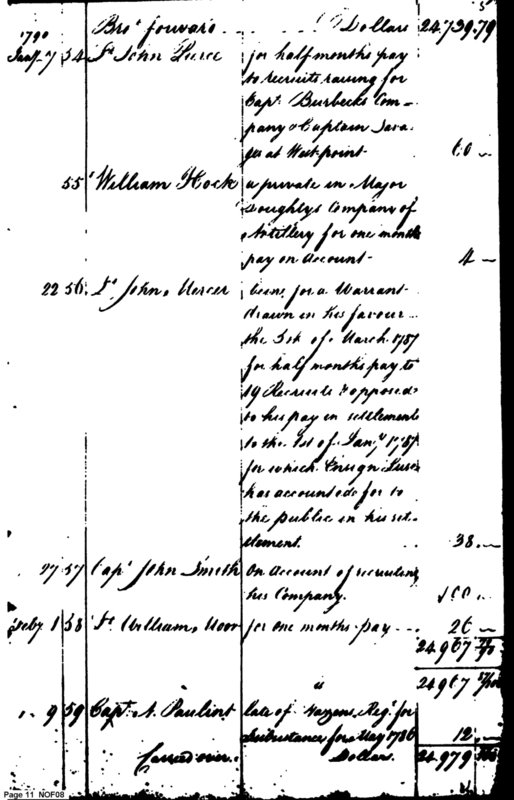 5
Bro.t forward ... Dollars 24,739.79
1790
Jan.y 7 54 L.t John Pierce for half months pay
to recruits raising for
Capt. Burbecks Com-
pany & Captain Sava-
ges at West point 60 -
55 William Hock a private in Major
Doughtys Company of
Artillery for one months
pay on account - 4 -
22 56 L.t John Mercer being for a Warrant
drawn in his favour
the 31st of March 1787
for half months pay to
19 Recruits & opposed
to his pay in settlement
to the 1st of Jan.y 1787
for which Ensign
has accounted for to
the public in his set-
tlement. 38 -
27 57 Cap.t John Smith On account of recruiting
his Company. 100 -
Feb.y 1 58 L.t William Moor for one months pay 26 -
24,967 79/100
24,967 79/100
" 9 59 Capt. A. Paulint late of Hazens Reg.t for
Subsistance for May 1786 12 -
Carried over. Dollars. 24,979
Page 11 NOF08